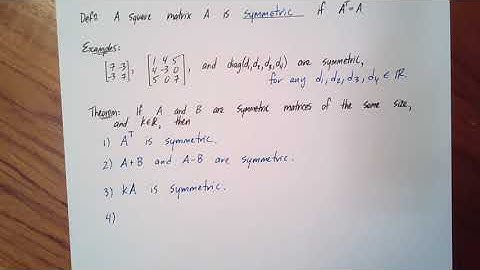 Defn: A square matrix A is symmetric if Aᵀ=A.
Examples:
[7 -3; -3 7], [1 4 5; 4 -3 0; 5 0 7], and diag(d₁,d₂,d₃,d₄) are symmetric,
for any d₁, d₂, d₃, d₄ ∈ ℝ.
Theorem: If A and B are symmetric matrices of the same size,
and k∈ℝ, then
1) Aᵀ is symmetric.
2) A+B and A-B are symmetric.
3) kA is symmetric.
4)